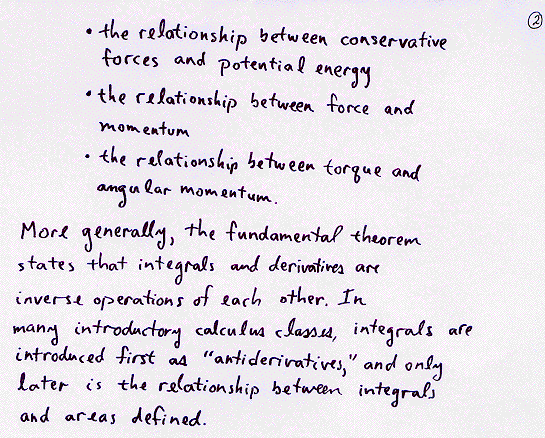 ②
• the relationship between conservative
forces and potential energy
• the relationship between force and
momentum
• the relationship between torque and
angular momentum.
More generally, the fundamental theorem
states that integrals and derivatives are
inverse operations of each other. In
many introductory calculus classes, integrals are
introduced first as "antiderivatives," and only
later is the relationship between integrals
and areas defined.